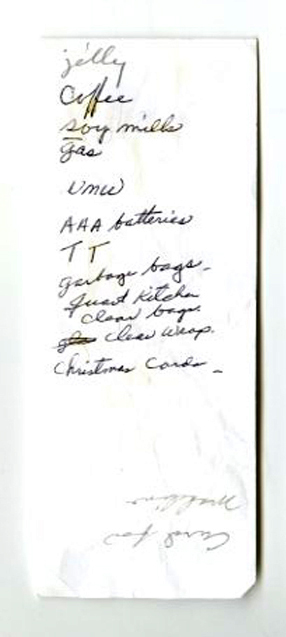 jelly
Coffee
soy milk
gas
AAA batteries
TT
garbage bags
Quart Kitchen
clear bags.
clear wrap.
Christmas Cards
Card for